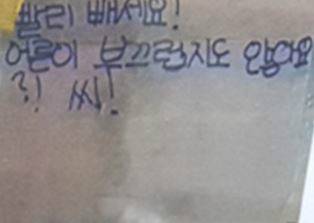 빨리 빼세요!
어른이 부끄럽지도 않아요
?! 씨!